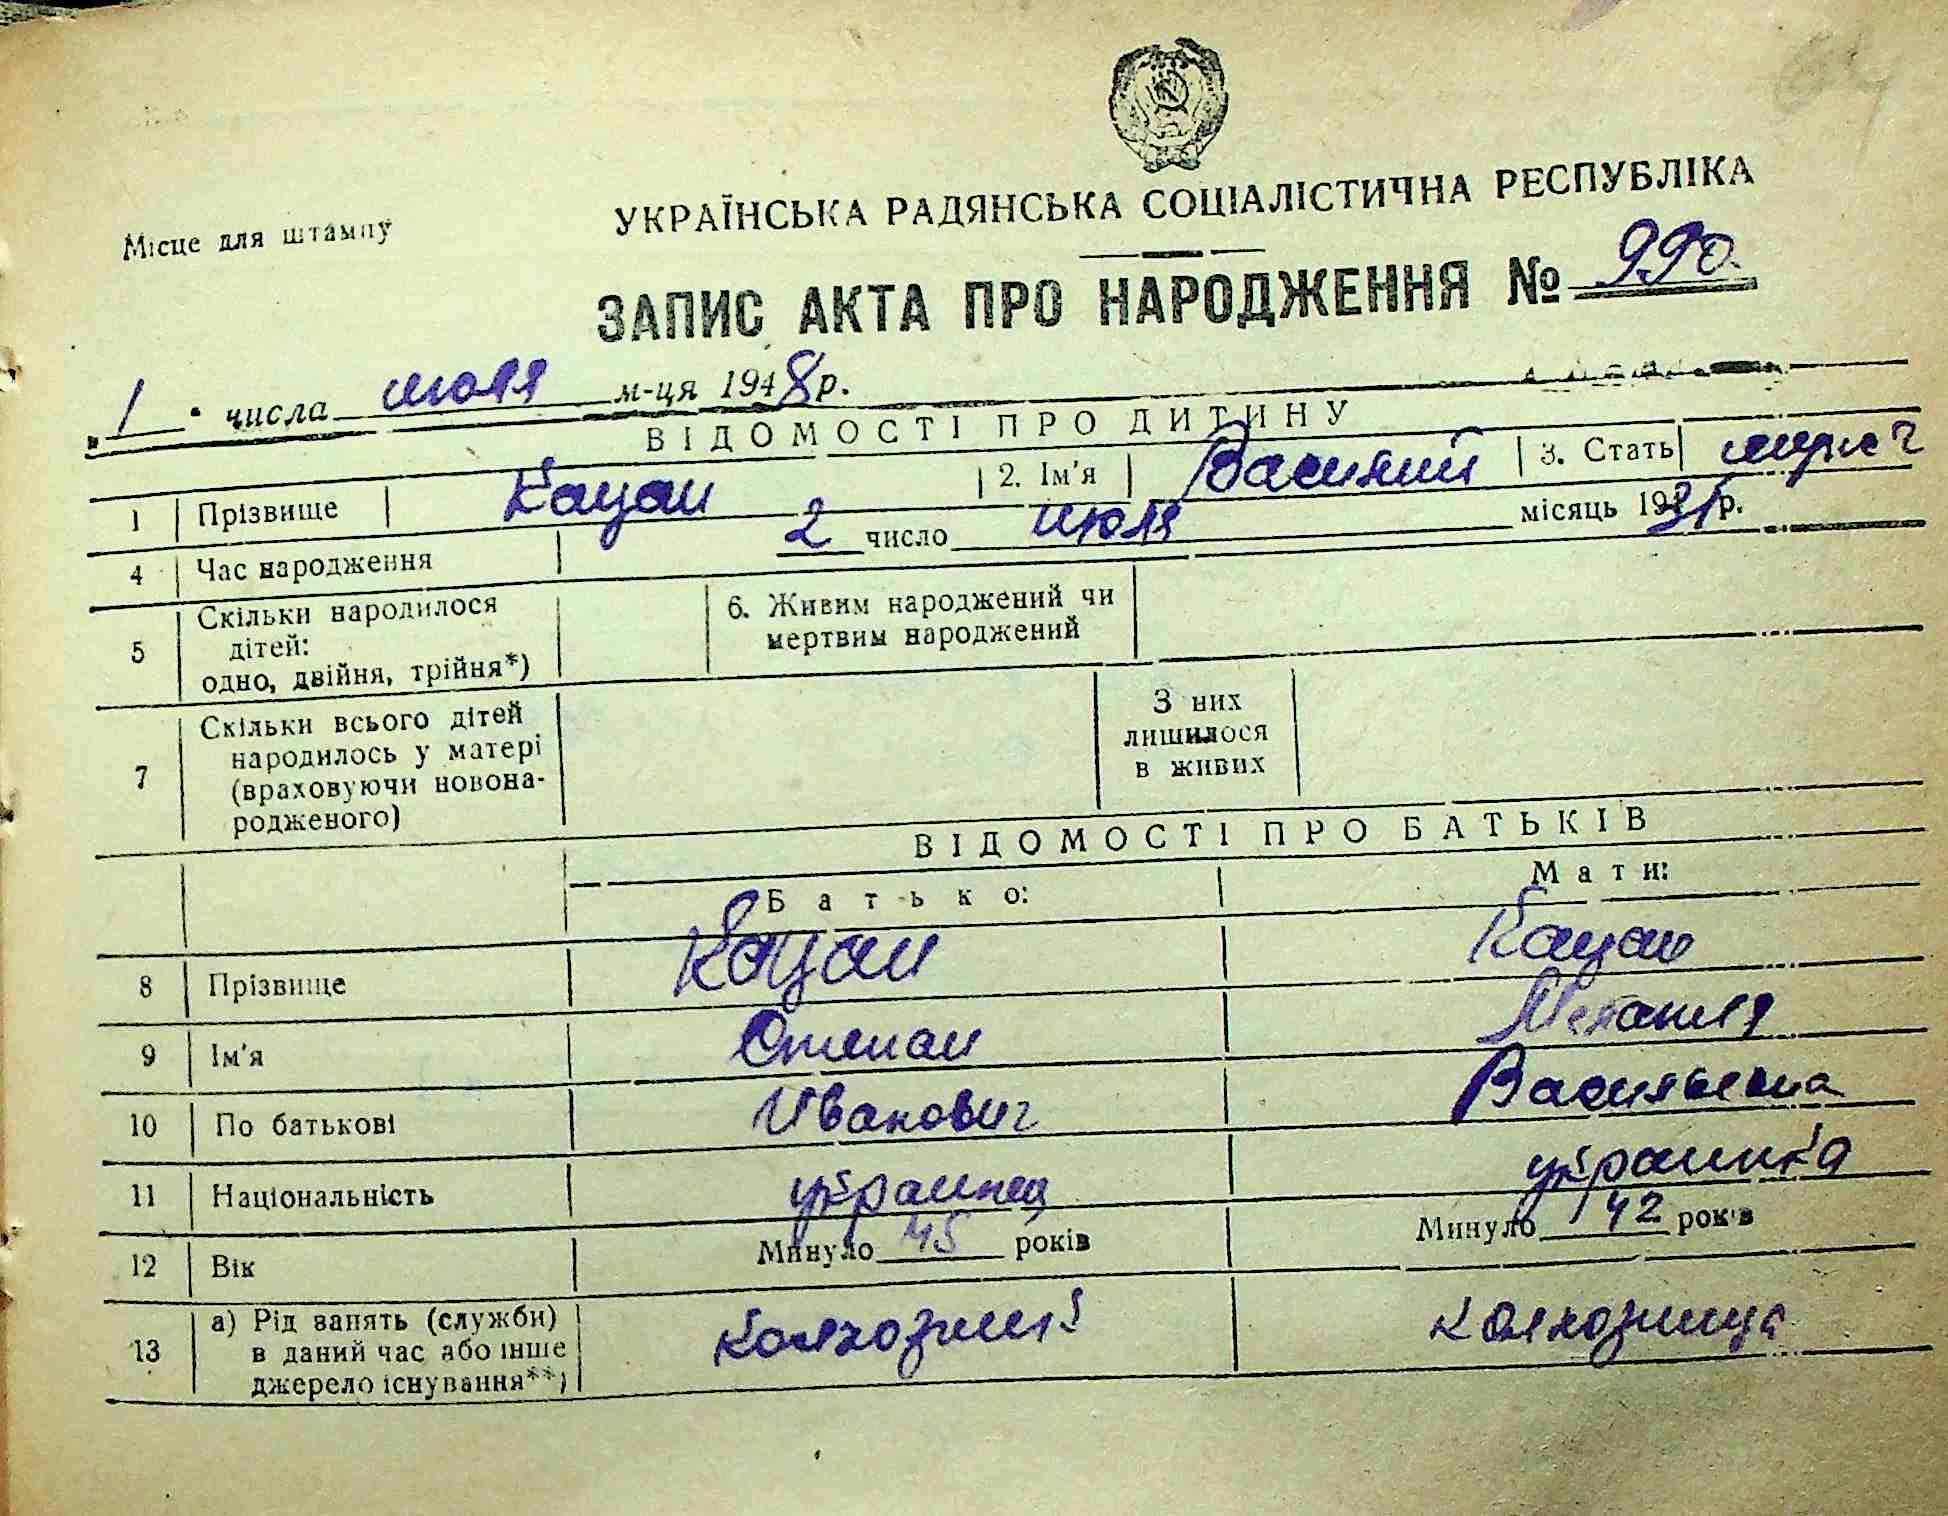 УКРАЇНСЬКА РАДЯНСЬКА СОЦІАЛІСТИЧНА РЕСПУБЛІКА
Місце для штампу
ЗАПИС АКТА ПРО НАРОДЖЕННЯ № 990.
"1" числа июля м-ця 1948 р.
ВІДОМОСТІ ПРО ДИТИНУ
1 Прізвище Кацан 2. Ім'я Василий 3. Стать муж
4 Час народження 2 число июля місяць 1931 р.
5 Скільки народилося дітей: одно, двійня, трійня*) 6. Живим народжений чи мертвим народжений
7 Скільки всього дітей народилось у матері (враховуючи новонародженого) З них лишилося в живих
ВІДОМОСТІ ПРО БАТЬКІВ
Батько: Мати:
8 Прізвище Кацан Кацан
9 Ім'я Степан Мелания
10 По батькові Иванович Васильевна
11 Національність украинец украинка
12 Вік Минуло 45 років Минуло 42 років
13 а) Рід занять (служби) в даний час або інше джерело існування**) колхозник колхозница